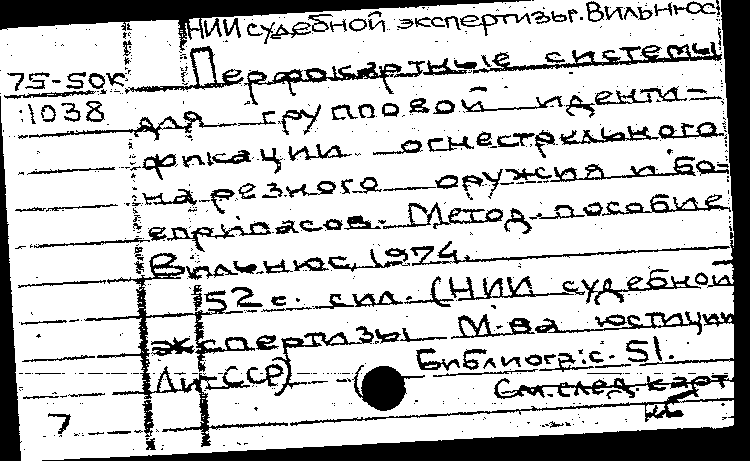 НИИ судебной экспертизы г. Вильнюс
Перфокартные системы
75-50к
:1038
для групповой иденти-
фикации огнестрельного
нарезного оружия и бо-
еприпасов. Метод. пособие
Вильнюс, 1974.
52 с. с ил. (НИИ судебной
экспертизы М-ва юстиции
ЛитССР)
Библиогр.: с. 51.
См. след. карт
7